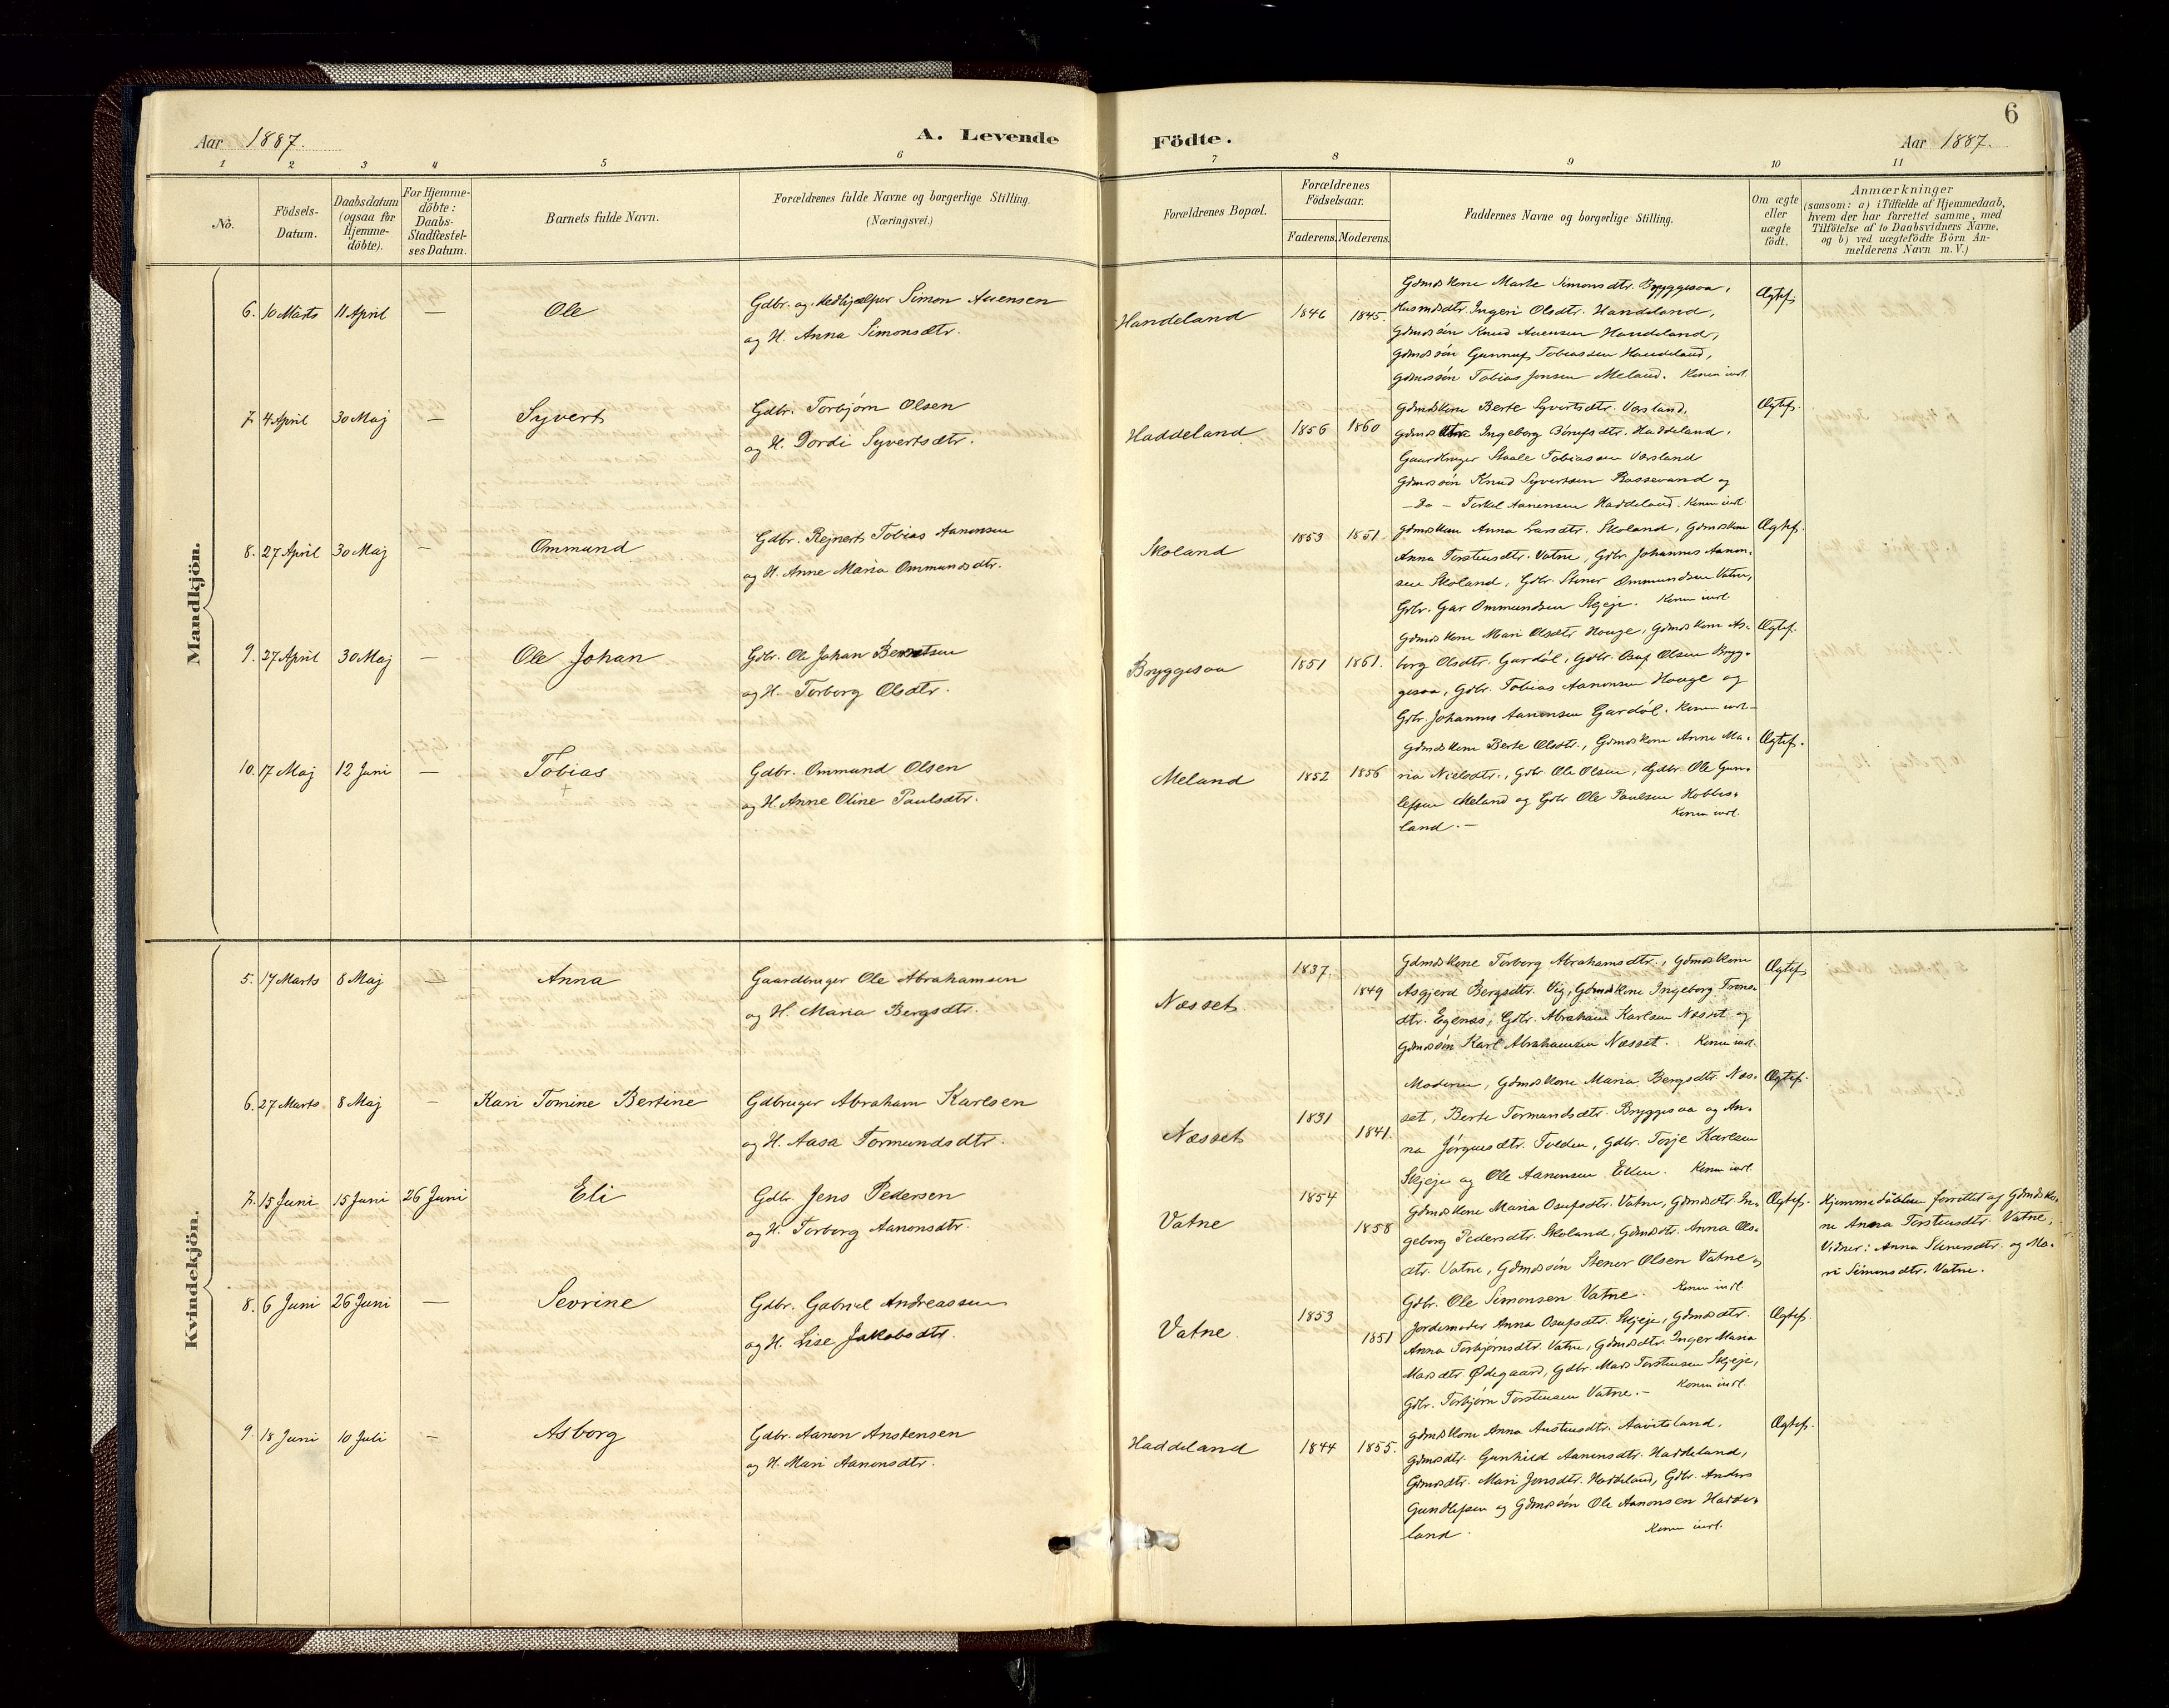 6
Aar 1887.
A. Levende Födte.
Aar 1887.
1 2 3 4 5 6 7 8 9 10 11
No.
Födsels-
Datum.
Daabsdatum
(ogsaa for
Hjemme-
döbte).
For Hjemme-
döbte:
Daabs-
Stadfæstel-
ses Datum.
Barnets fulde Navn.
Forældrenes fulde Navne og borgerlige Stilling.
(Næringsvei.)
Forældrenes Bopæl.
Forældrenes
Födselsaar.
Faderens. Moderens.
Faddernes Navne og borgerlige Stilling.
Om ægte
eller
uægte
födt.
Anmærkninger
(saasom: a) i Tilfælde af Hjemmedaab,
hvem der har forrettet samme, med
Tilföielse af to Daabsvidners Navne,
og b) ved uægtefödte Börn An-
melderens Navn m.V.)
Mandkjön.
6. 10 Marts 11 April — Ole
Gdbr. og Medhjælper Simon Auensen
og H. Anna Simonsdtr.
Handeland 1846 1845.
Gdmdskone Marte Simonsdtr. Bryggesaa,
Husmdsdtr. Ingeri Olsdtr. Handeland,
Gdmdssön Knud Auensen Handeland,
Gdmdssön Gunnuf Tobiassen Handeland,
Gdmdssön Tobias Jensen Meland. Konen indl.
Ægtef.
7. 4 April 30 Maj — Syvert
Gdbr. Torbjørn Olsen
og H. Dordi Syvertsdtr.
Haddeland 1856 1860
Gdmdskone Berte Syvertsdtr. Vorsland,
Gdmdsdtr. Ingeborg Omufsdtr. Haddeland,
Gaardbruger Staale Tobiassen Vorsland
Gdmdssön Knud Syvertsen Rossevand og
— Do — Torkel Aanensen Haddeland. Konen indl.
Ægtef.
8. 27 April 30 Maj — Ommund
Gdbr. Rejnert Tobias Aanonsen
og H. Anne Maria Ommundsdtr.
Skoland 1853 1851
Gdmdskone Anna Larsdtr. Skoland, Gdmdskone
Anna Torstensdtr. Vatne, Gdbr. Johannes Aanon-
sen Skoland, Gdbr. Stener Ommundsen Vatne,
Gdbr. Gar Ommundsen Skjeje. Konen indl.
Ægtef.
9. 27 April 30 Maj — Ole Johan
Gdbr. Ole Johan Berntsen
og H. Torborg Olsdtr.
Bryggesaa 1851 1861.
Gdmdskone Mari Olsdtr. Houge, Gdmdskone As-
borg Olsdtr. Gardöl, Gdbr. Osuf Olsen Brygg-
gesaa, Gdbr. Tobias Aanonsen Houge og
Gdbr. Johannes Aanonsen Gardöl. Konen indl.
Ægtef.
10. 17 Maj 12 Juni — Tobias
+
Gdbr. Ommund Olsen
og H. Anne Oline Paulsdtr.
Meland 1852 1856
Gdmdskone Berte Olsdtr., Gdmdskone Anne Ma-
ria Nielsdtr., Gdbr. Ole Olsen, Gdbr. Ole Gun-
lefsen Meland og Gdbr. Ole Paulsen Hobbes-
land. — Konen indl.
Ægtef.
Kvindekjön.
5. 17 Marts 8 Maj — Anna
Gaardbruger Ole Abrahamsen
og H. Maria Bergsdtr.
Næsset 1837. 1849
Gdmdskone Torborg Abrahamsdtr., Gdmdskone
Asgjerd Bergsdtr. Vig, Gdmdskone Ingeborg Tröns-
dtr. Egenæs, Gdbr. Abraham Karlsen Næsset og
Gdmdssön Karl Abrahamsen Næsset. Konen indl.
Ægtef.
6. 27 Marts 8 Maj — Kari Tomine Bertine
Gdbruger Abraham Karlsen
og H. Aasa Tormundsdtr.
Næsset 1831 1841.
Moderen, Gdmdskone Maria Bergsdtr. Næs-
set, Berte Tormundsdtr. Bryggesaa og An-
na Jörgensdtr. Tveden, Gdbr. Torje Karlsen
Skjeje og Ole Aanonsen Eeken. Konen indl.
Ægtef.
7. 15 Juni 15 Juni 26 Juni Eli
Gdbr. Jens Pedersen
og H. Torborg Aanonsdtr.
Vatne 1854 1858
Gdmdskone Maria Osufsdtr. Vatne, Gdmdsdtr. In-
geborg Pedersdtr. Skoland, Gdmdsdtr. Anna Ols-
dtr. Vatne, Gdmdssön Stener Olsen Vatne og
Gdbr. Ole Simonsen Vatne. Konen indl.
Ægtef.
Hjemmedöbelsen forrettet af Gdmdsko-
ne Anna Torstensdtr. Vatne,
Vidner: Anna Stenersdtr. og Ma-
ri Simonsdtr. Vatne.
8. 6 Juni 26 Juni — Sevrine
Gdbr. Gabriel Andreassen
og H. Lise Jakobsdtr.
Vatne 1853 1851
Jordemoder Anna Osufsdtr. Skjeje, Gdmdsdtr.
Anna Torbjörnsdtr. Vatne, Gdmdsdtr. Inger Maria
Madsdtr. Ødegaard, Gdbr. Mads Torstensen Skjeje,
Gdbr. Torbjörn Torstensen Vatne. — Konen indl.
Ægtef.
9. 18 Juni 10 Juli — Asborg
Gdbr. Aanon Anstensen
og H. Mari Aanonsdtr.
Haddeland 1844 1855.
Gdmdskone Anna Anstensdtr. Aavitsland,
Gdmdsdtr. Gunhild Aanonsdtr. Haddeland,
Gdmdsdtr. Mari Jensdtr. Haddeland, Gdbr. Anders
Gundlefsen og Gdmdssön Ole Aanonsen Hadde-
land. Konen indl.
Ægtef.